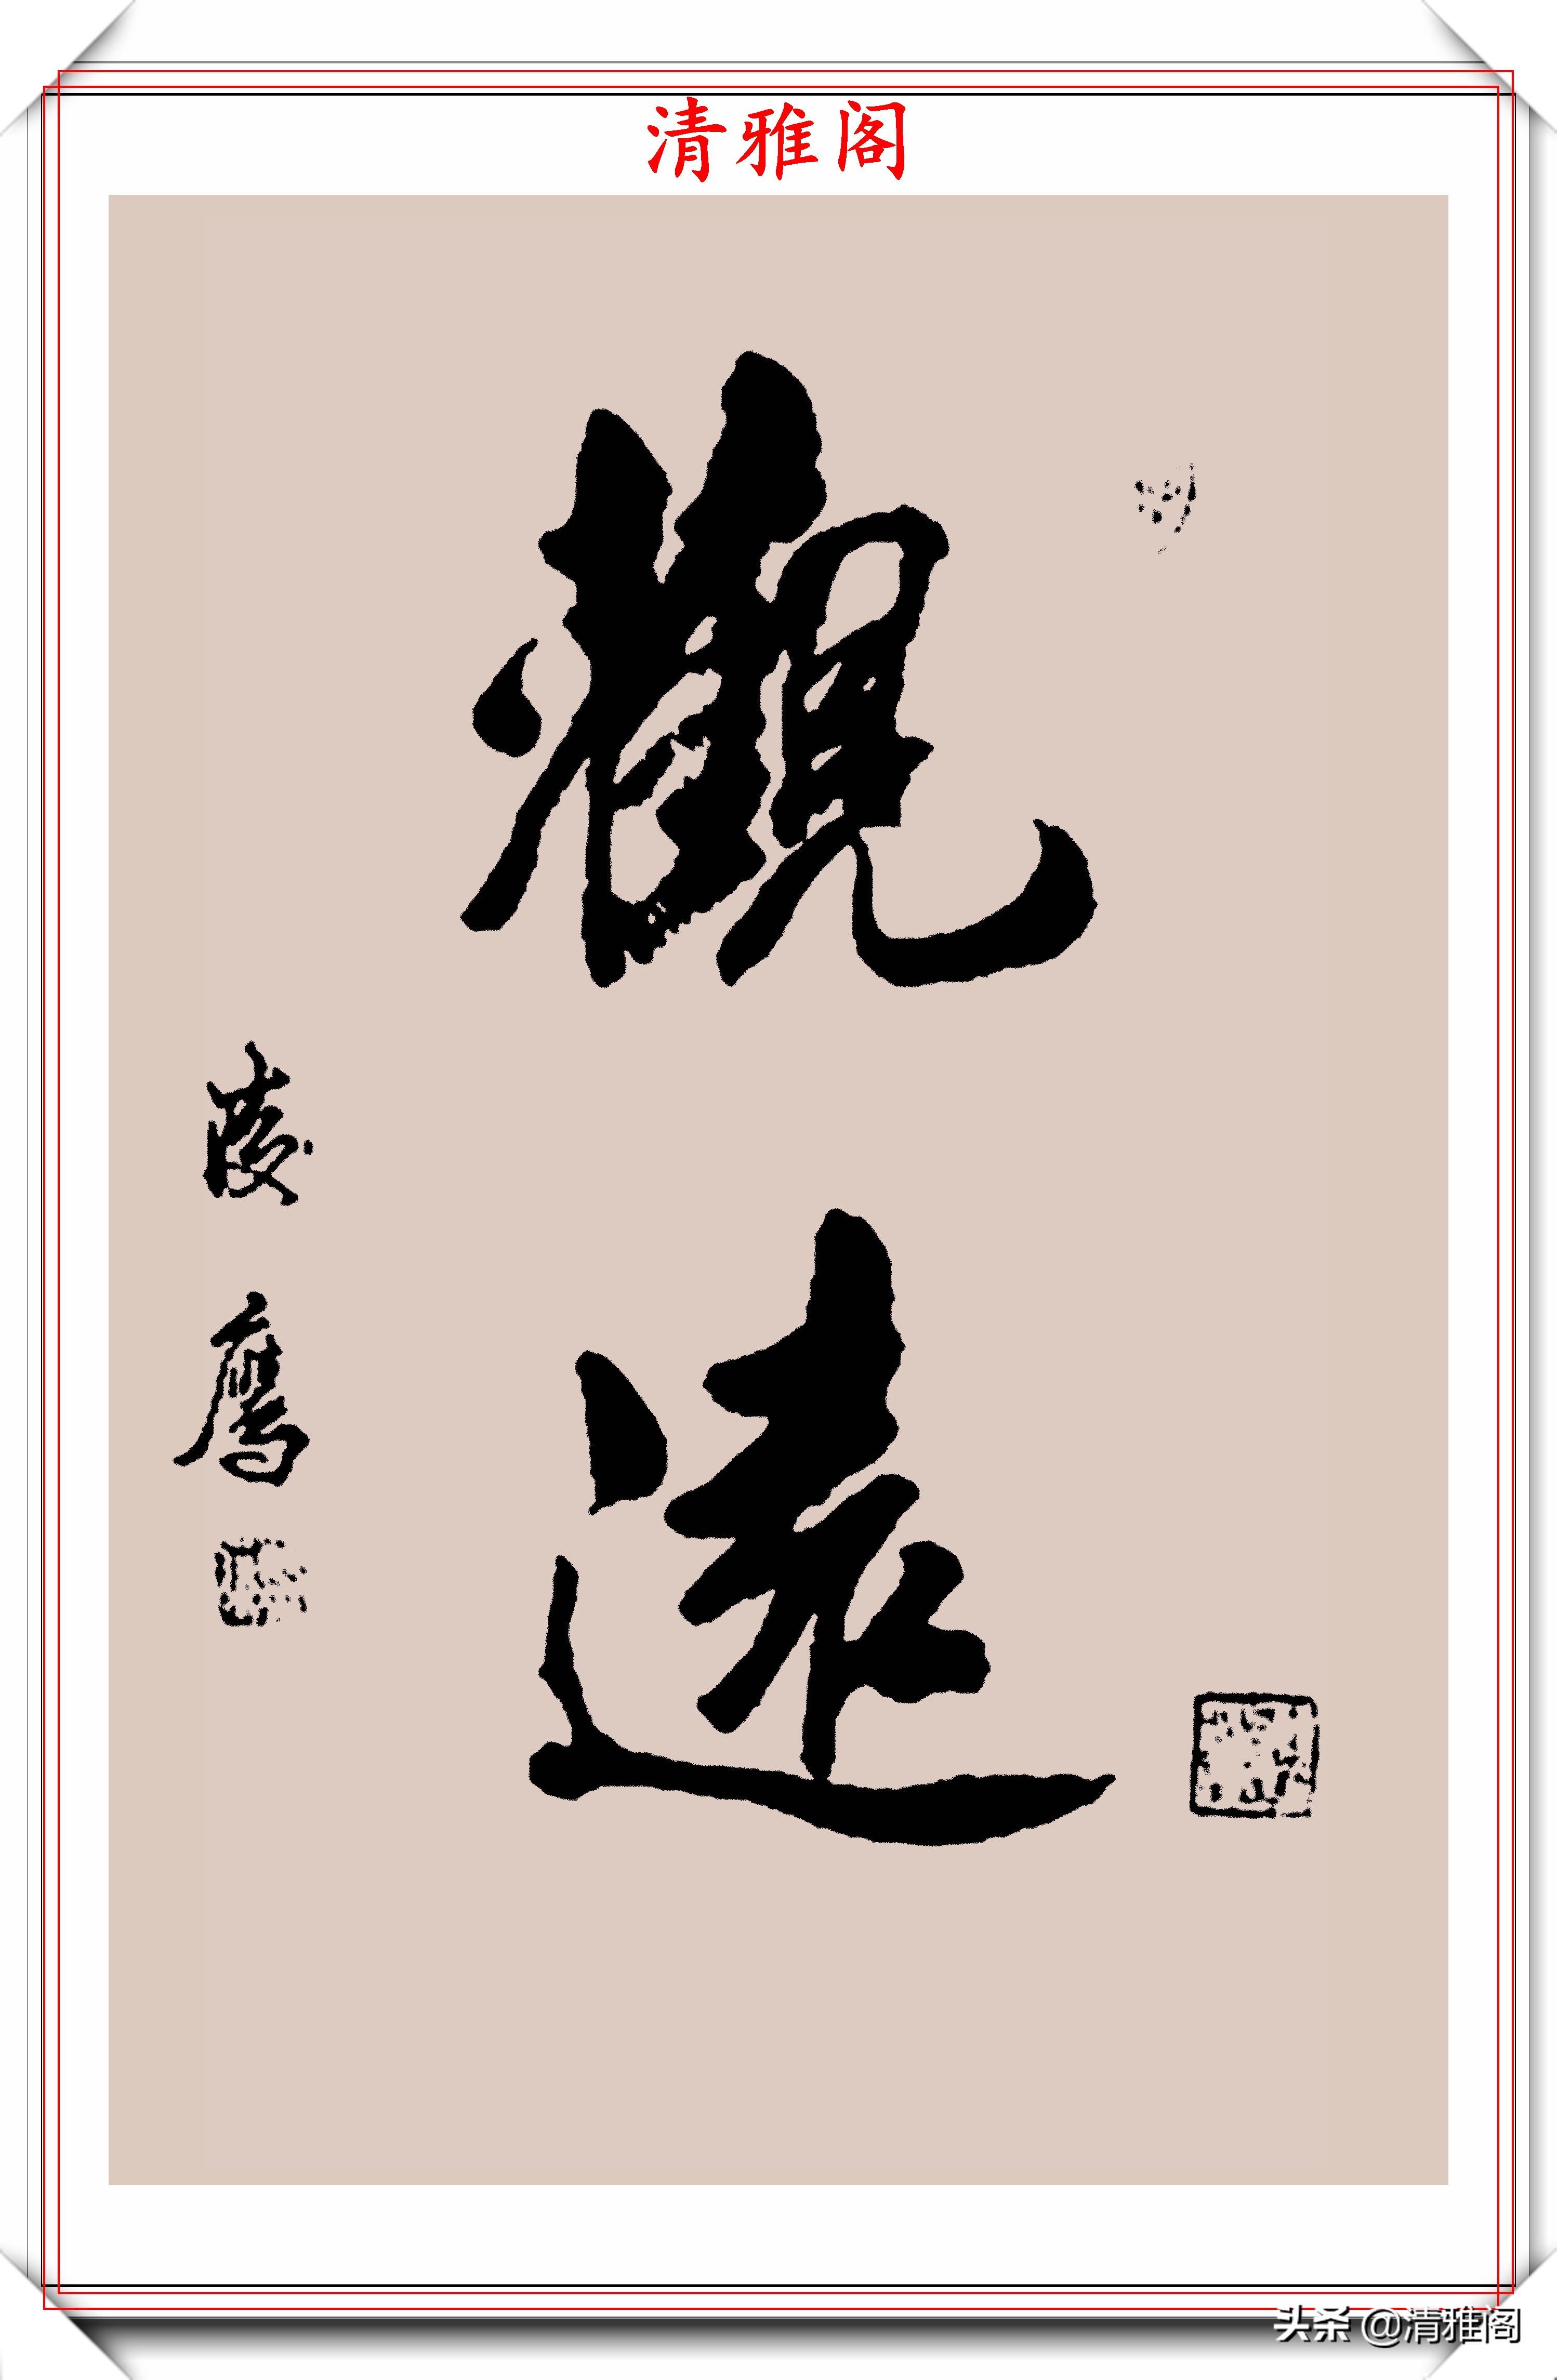 清雅阁
觀
遠
鹰
头条 @清雅阁